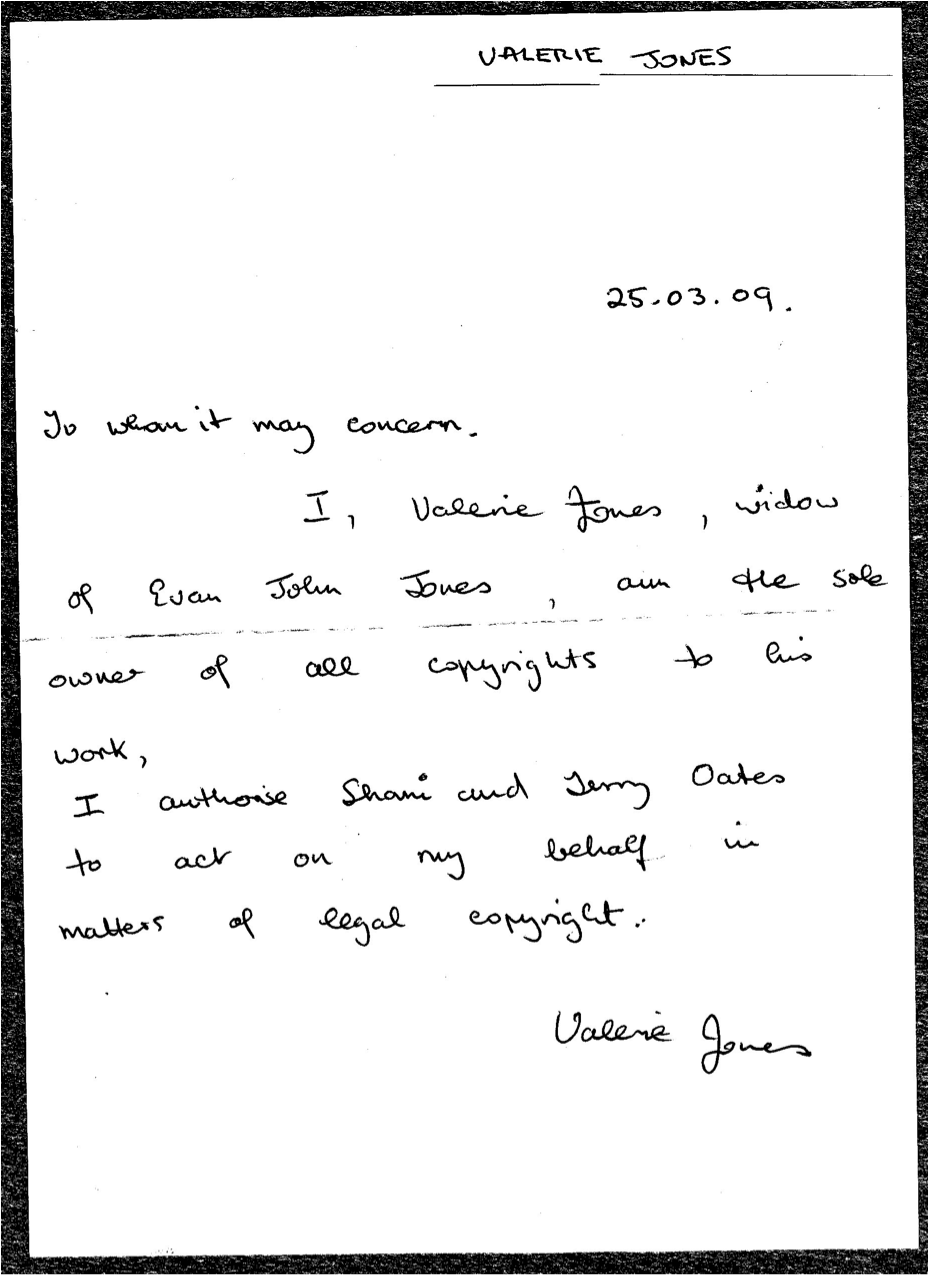 VALERIE JONES
25.03.09.
To whom it may concern.
I, Valerie Jones, widow
of Evan John Jones, am the sole
owner of all copyrights to his
work,
I authorise Shani and Terry Oates
to act on my behalf in
matters of legal copyright.
Valerie Jones